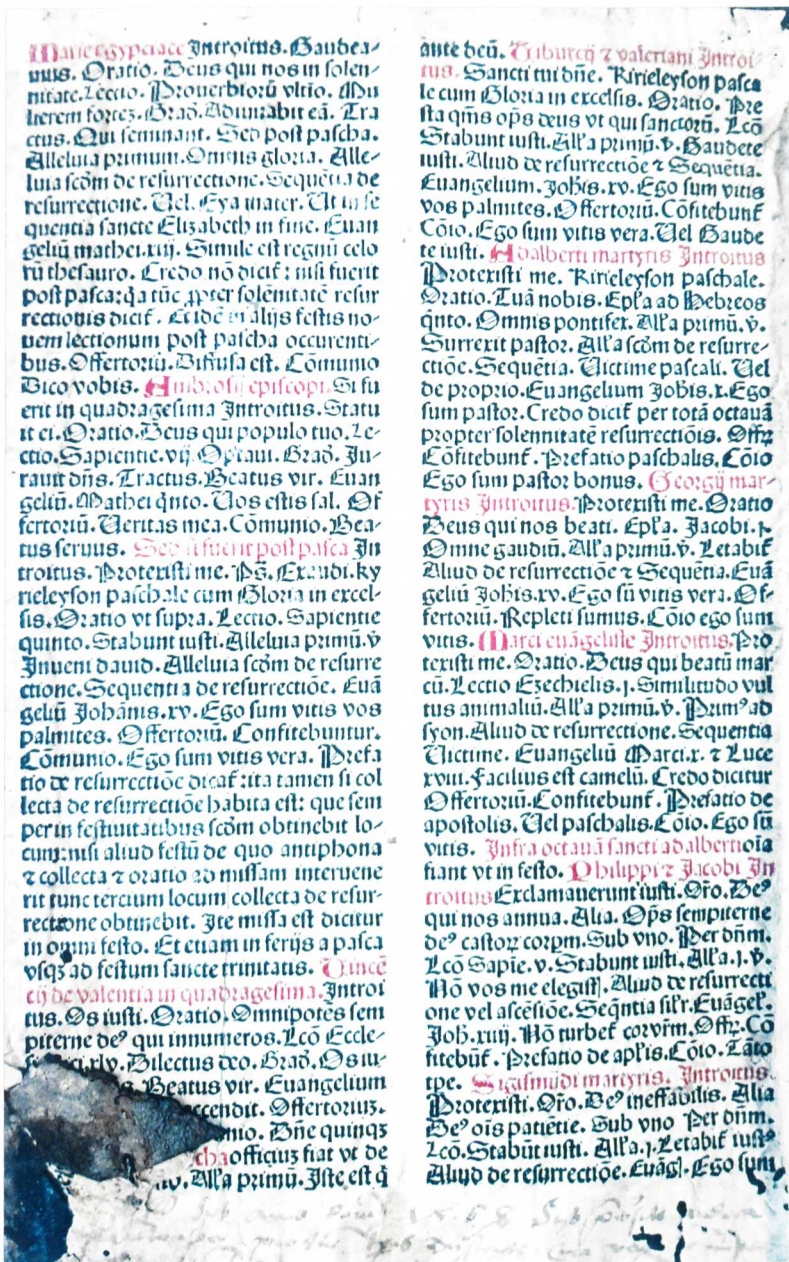 Marie egypciace Introitus. Gaudea-
mus. Oratio. Deus qui nos in solen-
nitate. Lectio. Prouerbiorū vltio. Mu
lierem fortez. Grad̄. Adiuuabit eā. Tra
ctus. Qui seminant. Sed post pascha.
Alleluia primum. Omnis gloria. Alle-
luia scd̄m de resurrectione. Sequētia de
resurrectione. Uel. Eya mater. Ut in se
quentia sancte Elizabeth in fine. Euan
geliū mathei. xiij. Simile est regnū celo
rū thesauro. Credo nō dicit᷑: nisi fuerit
post pasca: qꝛ tūc ꝓpter solēnitatē resur
rectionis dicit᷑. Et idē in alijs festis no-
uem lectionum post pascha occurenti-
bus. Offertoriū. Diffusa est. Cōmunio
Dico vobis. Ambrosij episcopi. Si fu
erit in quadragesima Introitus. Statu
it ei. Oratio. Deus qui populo tuo. Le-
ctio. Sapientie. vij. Optaui. Grad̄. Ju-
rauit dn̄s. Tractus. Beatus vir. Euan
geliū. Mathei qͥnto. Uos estis sal. Of
fertoriū. Ueritas mea. Cōmunio. Bea-
tus seruus. Sed si fuerit post pasca In
troitus. Protexisti me. Ps̄. Exaudi. ky
rieleyson paschale cum Gloria in excel-
sis. Oratio vt supra. Lectio. Sapientie
quinto. Stabunt iusti. Alleluia primū. v̄
Inueni dauid. Alleluia scd̄m de resurre
ctione. Sequentia de resurrectiōe. Euā
geliū Johānis. xv. Ego sum vitis vos
palmites. Offertoriū. Confitebuntur.
Cōmunio. Ego sum vitis vera. Prefa
tio de resurrectiōe dicat᷑: ita tamen si col
lecta de resurrectiōe habita est: que sem
per in festiuitatibus scd̄m obtinebit lo-
cum: nisi aliud festū de quo antiphona
⁊ collecta ⁊ oratio ad missam interuene
rit tunc tercium locum collecta de resur-
rectione obtinebit. Ite missa est dicitur
in omni festo. Et etiam in ferijs a pasca
vsqꝫ ad festum sancte trinitatis. Uincē
tij de valentia in quadragesima. Introi
tus. Os iusti. Oratio. Omnipotēs sem
piterne deꝰ qui innumeros. Lcō Eccle-
xlv. Dilectus deo. Grad̄. Os iu-
Beatus vir. Euangelium
Offertoriuꝫ.
Dn̄e quinqꝫ
officiuꝫ fiat vt de
All'a primū. Iste est q̄
ante deū. Tiburcij ⁊ valeriani Introi
tus. Sancti tui dn̄e. Kirieleyson pasca
le cum Gloria in excelsis. Oratio. Pre
sta qm̄s op̄s deus vt qui sanctorū. Lcō
Stabunt iusti. All'a primū. v̄. Gaudete
iusti. Aliud de resurrectiōe ⁊ Sequētia.
Euangelium. Joh̄is. xv. Ego sum vitis
vos palmites. Offertoriū. Cōfitebunt᷑
Cōio. Ego sum vitis vera. Uel Gaude
te iusti. Adalberti martyris Introitus
Protexisti me. Kirieleyson paschale.
Oratio. Tuā nobis. Epl'a ad Hebreos
qͥnto. Omnis pontifex. All'a primū. v̄.
Surrexit pastor. All'a scd̄m de resurre-
ctiōe. Sequētia. Uictime pascali. Uel
de proprio. Euangelium Joh̄is. x. Ego
sum pastor. Credo dicit᷑ per totā octauā
propter solennitatē resurrectiōis. Offꝛ
Cōfitebunt᷑. Prefatio paschalis. Cōio
Ego sum pastor bonus. Georgij mar-
tyris Introitus. Protexisti me. Oratio
Deus qui nos beati. Epl'a. Jacobi. j.
Omne gaudiū. All'a primū. v̄. Letabit᷑
Aliud de resurrectiōe ⁊ Sequētia. Euā
geliū Joh̄is. xv. Ego sū vitis vera. Of-
fertoriū. Repleti sumus. Cōio ego sum
vitis. Marci euāgeliste Introitus. Pro
texisti me. Oratio. Deus qui beatū mar
cū. Lectio Ezechielis. j. Similitudo vul
tus animaliū. All'a primū. v̄. Primꝰ ad
syon. Aliud de resurrectione. Sequentia
Uictime. Euangeliū Marci. x. ⁊ Luce
xviij. Facilius est camelū. Credo dicitur
Offertoriū. Confitebunt᷑. Prefatio de
apostolis. Uel paschalis. Cōio. Ego sū
vitis. Infra octauā sancti adalberti oīa
fiant vt in festo. Philippi ⁊ Jacobi In
troitus Exclamauerunt iusti. Or̄o. Deꝰ
qui nos annua. Alia. Op̄s sempiterne
deꝰ castoꝝ corpm. Sub vno. Per dn̄m.
Lcō Sapīe. v. Stabunt iusti. All'a. j. v̄.
Nō vos me elegist᷑. Aliud de resurrecti
one vel ascēsiōe. Seqn̄tia sil'r. Euāgel'.
Joh. xiiij. Nō turbet᷑ cor vr̄m. Offꝛ. Cō
fitebūt᷑. Prefatio de apl'is. Cōio. Tāto
tpe. Sigismūdi martyris. Introitus.
Protexisti. Or̄o. Deꝰ ineffabilis. Alia
Deꝰ oīs patiētie. Sub vno Per dn̄m.
Lcō. Stabūt iusti. All'a. j. Letabit᷑ iustꝰ
Aliud de resurrectiōe. Euāgl. Ego sum